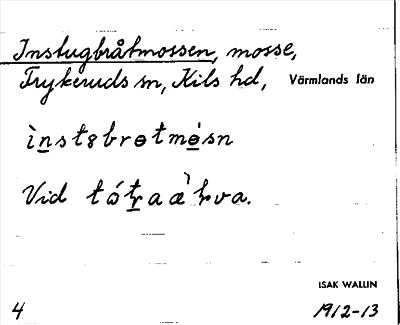 Instugbråtmossen, mosse,
Frykeruds sn, Kils hd, Värmlands län
ìnstȣbrɵtmɵ́sn
Vid
ISAK WALLIN
4 1912-13